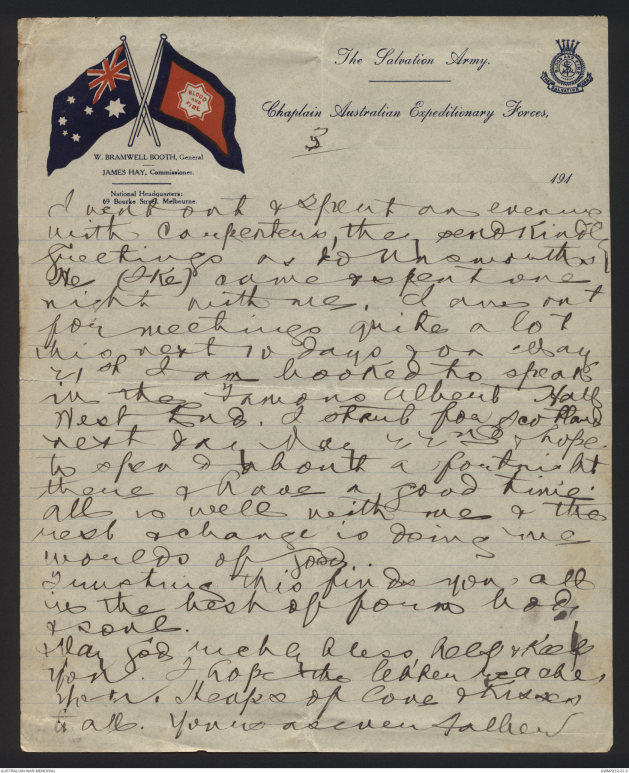 The Salvation Army.
Chaplain Australian Expeditionary Forces,
BLOOD
AND
FIRE
W. BRAMWELL BOOTH, General
JAMES HAY, Commissioner.
National Headquarters:
69 Bourke Street, Melbourne.
5
191
I went out & spent an evening
with Carpenters, they send kindly
greetings as do Unsworths
He (Ike) came & spent one
night with me. I am out
for meetings quite a lot
this next 10 days & on May
21st I am booked to speak
in the Famous Albert Hall
West End. I start for Scotland
next day May 22nd & hope
to spend about a fortnight
there & have a good time.
All is well with me & the
rest & change is doing me
worlds of good
Trusting this finds you all
in the best of form body
& soul.
May God richly bless help & keep
you. I hope the letter reaches
you. Heaps of love & kisses
to all. Yours as ever Father
AUSTRALIAN WAR MEMORIAL